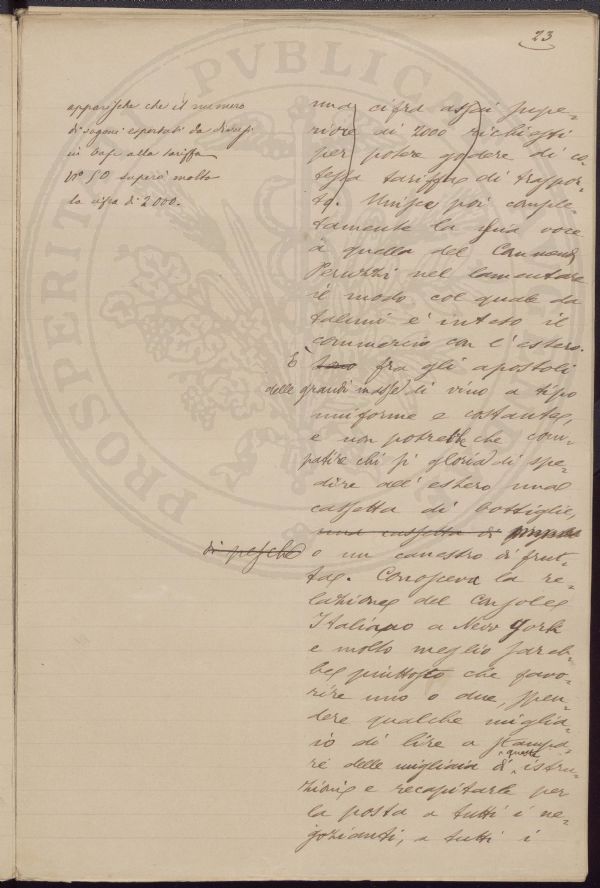 23
apparisce che il numero
di vagoni esportati da diversi
in base alla tariffa
N° 50 superò molto
la cifra di 2000.
una cifra assai supe-
riore di 2000 richiesti
per potere godere di co-
testa tariffa di traspor-
to. Unisce poi comple-
tamente la sua voce
a quella del Commend
Peruzzi nel lamentare
il modo col quale da
taluni è inteso il
commercio con l'estero.
È fra gli apostoli
delle grandi masse di vino a tipo
uniforme e costante,
e non potrebbe che com-
patire chi si gloria di spe-
dire all'estero una
cassetta di bottiglie,
una cassetta di
di pesche
o un canestro di frut-
ta. Conosceva la re-
lazione del Console
Italiano a New York
e molto meglio sareb-
be piuttosto che favo-
rire uno o due, spen-
dere qualche miglia-
io di lire a stampa-
re delle migliaia di queste istru-
zioni e recapitarle per
la posta a tutti i ne-
gozianti, a tutti i
PROSPERITÀ PVBLICA